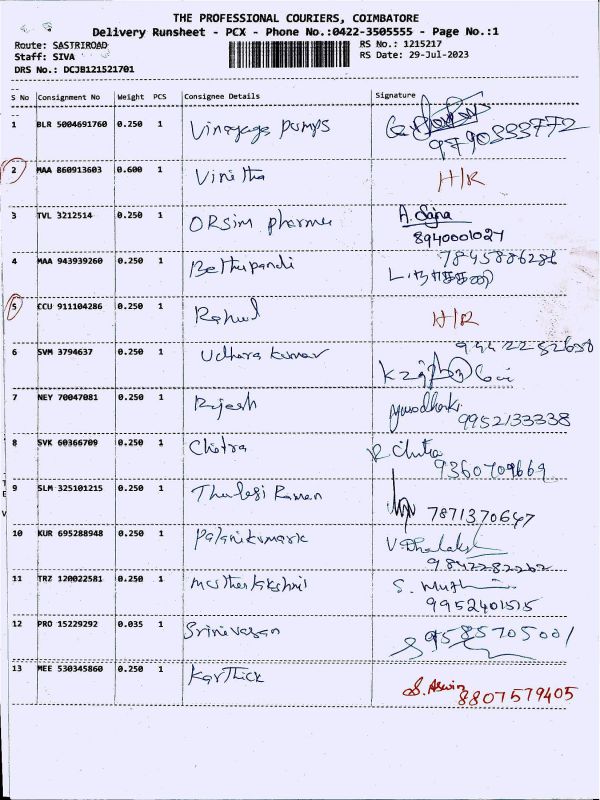 THE PROFESSIONAL COURIERS, COIMBATORE
Delivery Runsheet - PCX - Phone No.:0422-3505555 - Page No.:1
Route: SASTRIROAD RS No.: 1215217
Staff: SIVA RS Date: 29-Jul-2023
DRS No.: DCJB121521701
S No Consignment No Weight PCS Consignee Details Signature
1 BLR 5004691760 0.250 1 Vinayaga pumps
9790333772
2 MAA 860913603 0.600 1 Vinitha H/R
3 TVL 3212514 0.250 1 ORsim pharma A. Sajna
8940001027
4 MAA 943939260 0.250 1 Bethupandi 7845886281
5 CCU 911104286 0.250 1 Rahul H/R
6 SVM 3794637 0.250 1 Udhaya kumar
7 NEY 70047081 0.250 1 Rajesh
9952133338
8 SVK 60366709 0.250 1 Chitra R Chitra
9360709669
9 SLM 325101215 0.250 1 Thulasi Raman
7871370647
10 KUR 695288948 0.250 1 Palanikumar
9842282262
11 TRZ 120022581 0.250 1 S.
9952401515
12 PRO 15229292 0.035 1 Srinivasan 9585705001
13 MEE 530345860 0.250 1 Karthick
S. Aswin 8807579405